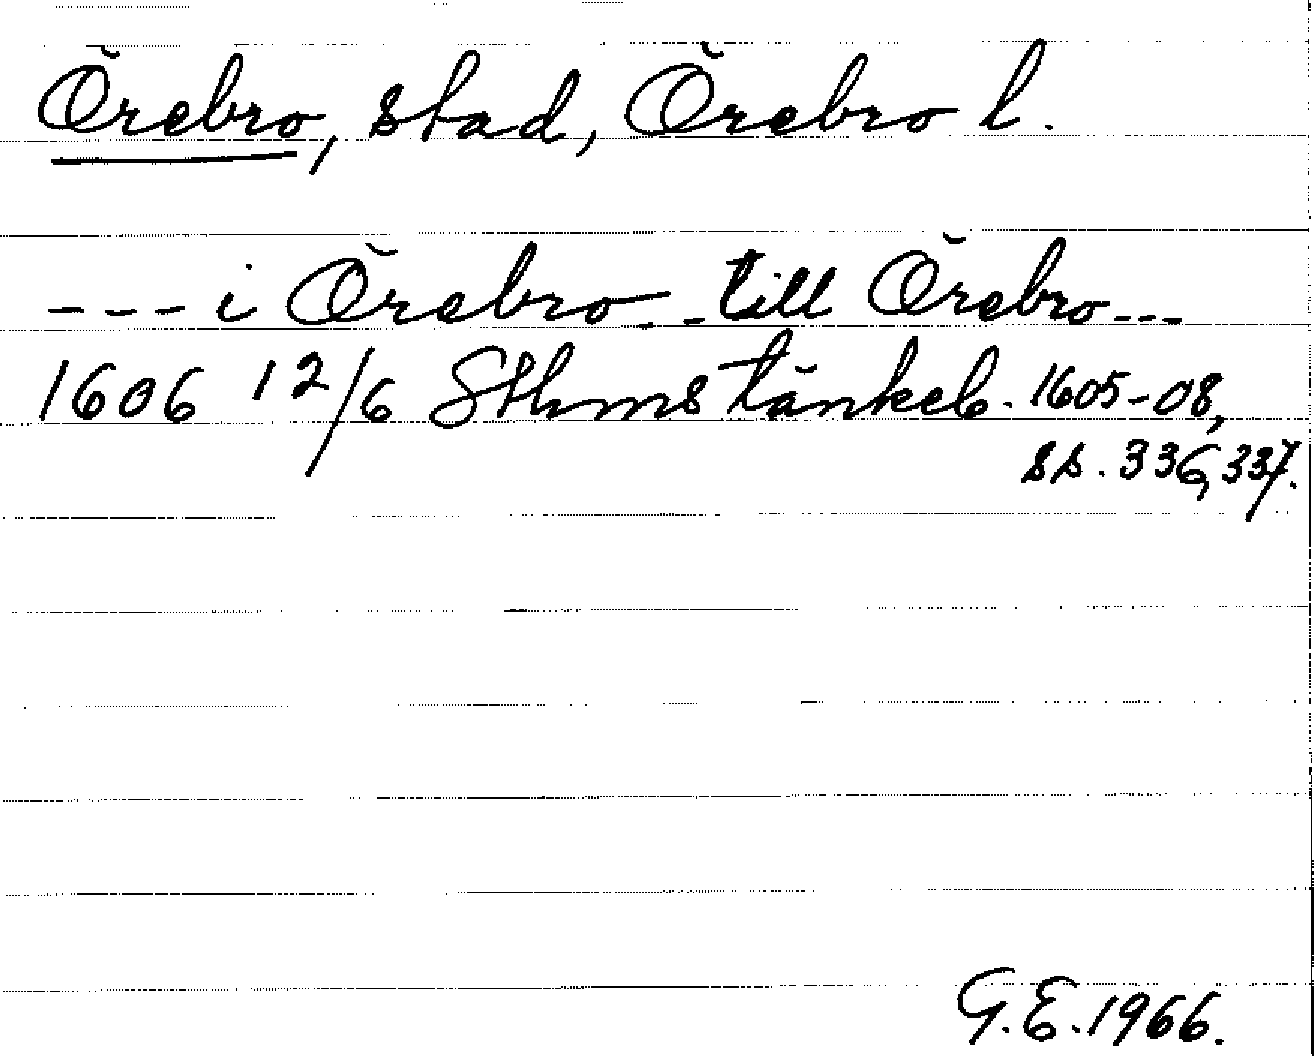 Örebro, stad, Örebro l.
--- i Örebro -- till Örebro ---
1606 12/6 Sthms tänkeb. 1605-08,
ss. 336, 337.
G.E. 1966.